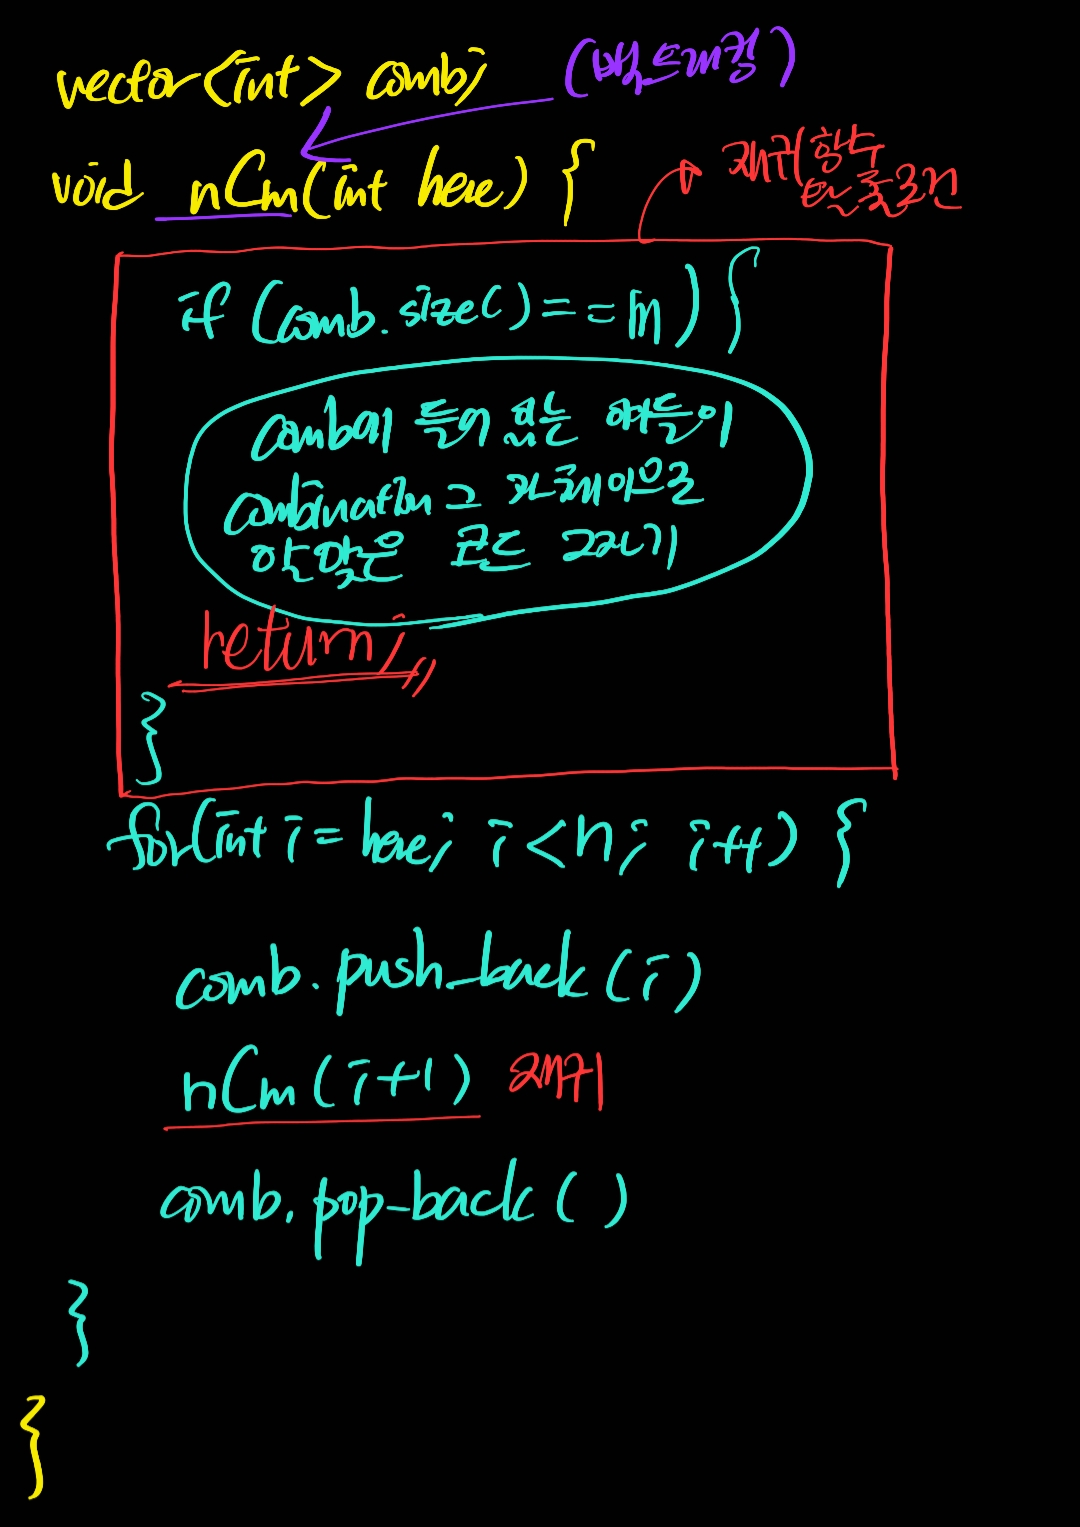 vector<int> comb;
(백트래킹)
void nCm(int here) {
재귀함수
탈출조건
if (comb.size() == m) {
comb에 들어 있는 애들이
combination 그 자체이므로
알맞은 코드 짜기
return;
}
for(int i = here; i < n; i++) {
comb.push_back(i)
nCm(i+1) 재귀
comb.pop_back()
}
{